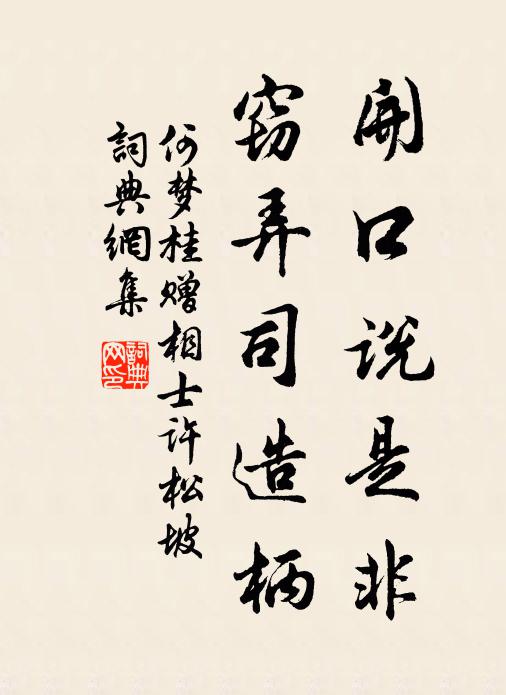 開口说是非
窃弄司造柄
何梦桂赠相士许松坡
詞典網集
詞典网印